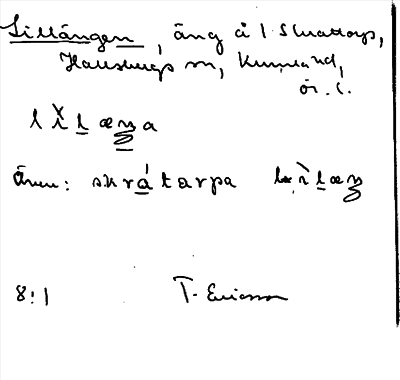 Lillängen, äng å 1 Skråttorp,
Hallsbergs sn, Kumla hd,
ör. l.
l ì l æŋa
Även: skråtarpa lìlæŋ
8:1 T. Ericsson